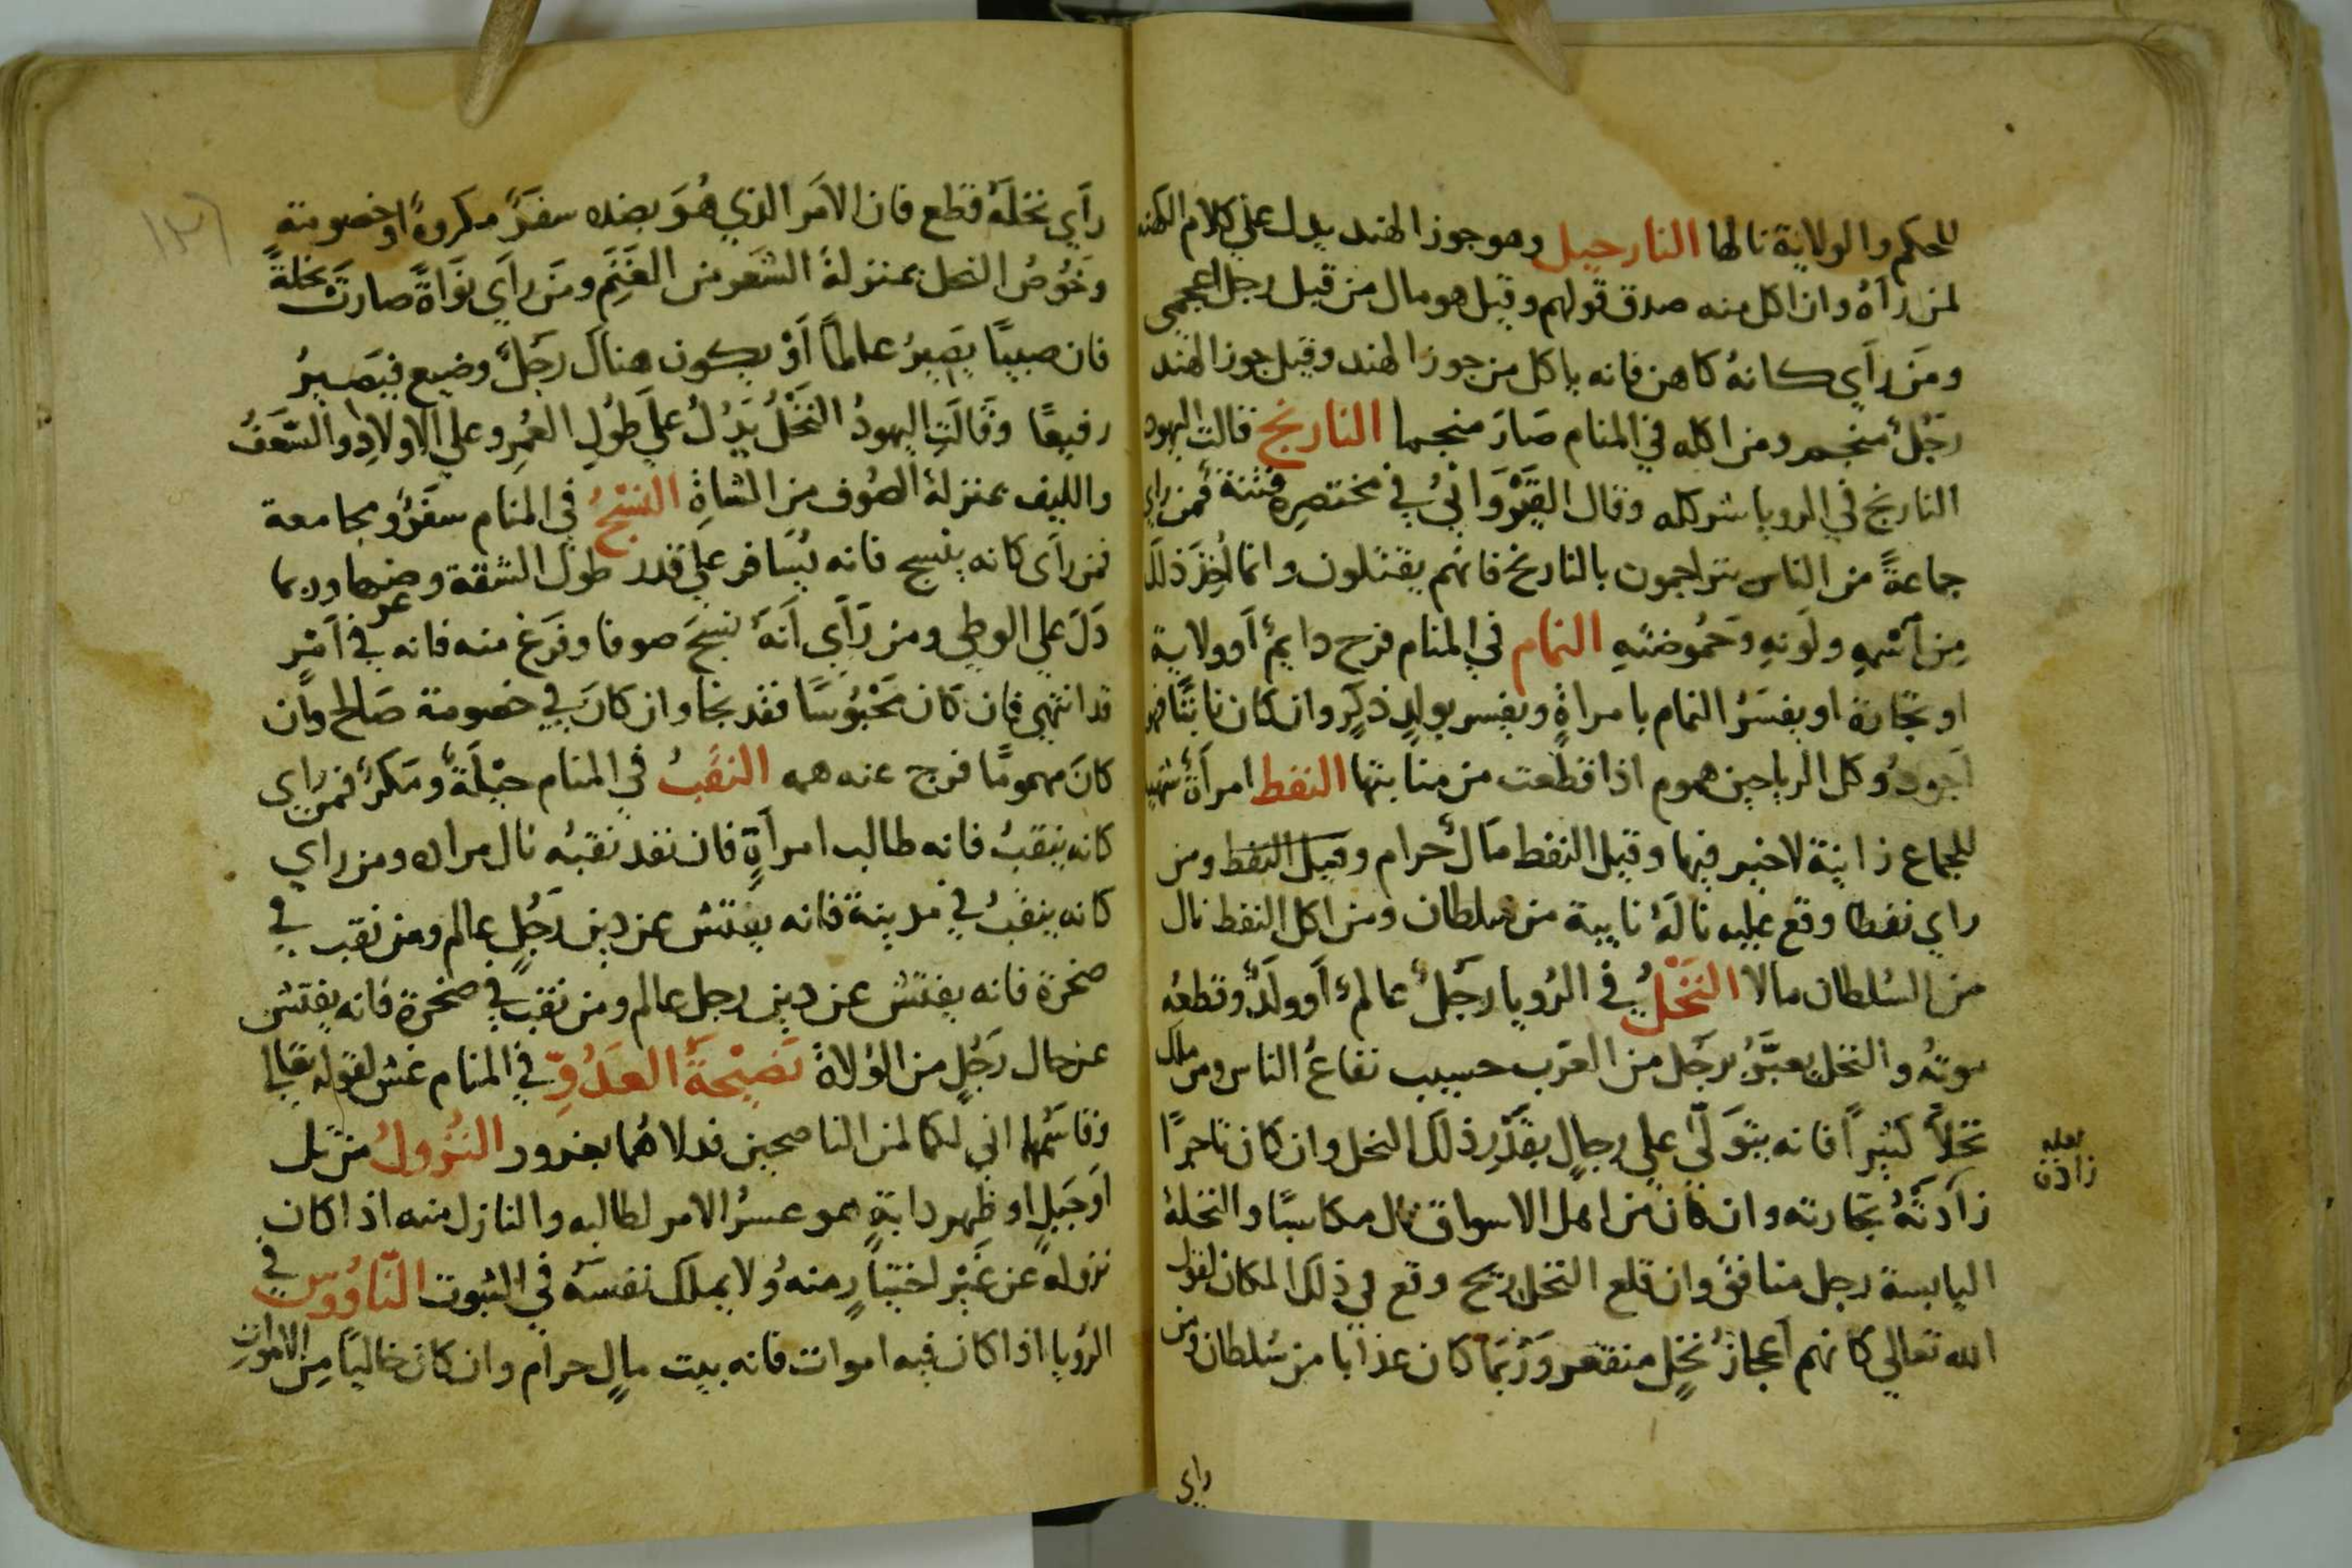 للحكم والولاية نالها النارجيل وهو جوز الهند يدل علي كلام الكهنه
لمن رآهُ وان اكل منه صدق قولهم وقيل هو مال من قبل رجل اعجمى
ومَن رآي كانهُ كاهن فانه ياكل من جوز الهند وقيل جوز الهند
رَجُلٌ منجم ومن اكله في المنام صَارَ منجما النارنج قالت اليهود
النارنج في الرويا شر كله وقال القَيْرَوَانيُ في مختصرِه فتنة فمن راي
جماعةً من الناس يتراجمون بالنارنج فانهم يقتتلون وانما اُخِذَ ذلك
مِن اسْمِهِ ولَونِهِ وحَمُوضتهِ النمام في المنام فرح دايمٌ اَو ولاية
او تجَارة او يفسَرُ النمام بامراةٍ ويفسر بولدٍ ذكرٍ وان كان نابتًا فهو
اَجودُ وكل الرياحين هموم اذا قطعت من منابتها النفط امرأةٌ
للجماع زانية لاخير فيها وقيل النفط مَالٌ حرام وقيل النفط ومن
راي نفطا وقع عليه نالَهُ نايبة من سلطان ومن اكل النفط نال
من السُلطان مالا النَخْلُ في الرُويا رَجُلٌ عالمٌ اَو ولَدٌ وقطعُه
موتهُ والنخل يعبَّرُ برَجُل من العرَب حسيب نفاعُ الناس ومن ملك
نخلاً كثيراً فانه يتوَلّي علي رجالٍ بقَدْرِ ذلكَ النخل وان كان تاجرًا
زَادتْهُ تجارته وان كان من اهل الاسواق نال مكاسبًا والنخلة
اليابسة رجل منافقٌ وان قلع النخل ريح وقع في ذلك المكان لقول
الله تعالي كانهم اَعجازُ نخلٍ منقعر ورُبَمَا كان عذابا من سُلطان ومن
راي
زادت
رآي نخلَةً قطع فان الامَر الذي هُوَ بضده سفرَ مكروهٌ او خصومة
وخُوصُ النخل بمنزلةُ الشعر من الغَنَم ومَن رآي نوَاةً صارتَ نخلةً
فان صبيًا يَصِيرُ عالماً اَوْ يكون هناك رَجلٌ وضيع فيَصيرُ
رفيعًا وقَالَتِ اليهودُ النَخْلُ يَدُلُ عليَ طُولِ العُمِر وعلي الاولادِ والسَعَفُ
والليف بمنزلة الصُوف من الشاةِ النسْجُ في المنام سفَرٌ ومجامعة
فمن راي كانه ينسج فانه يُسَافر علي قدر طول الشقة وعرضها وربما
دَلَ علي الوطي ومن رَأي اَنهُ نسجَ صوفا وفَرَغ منه فانه في اَمْرٍ
قد انتهي فان كَان مَحْبُوسًا فقد نجا وان كانَ في خصومة صَالح وان
كانَ مهمومًا فرج عنه همه النقَبُ في المنام حيْلةٌ ومَكرٌ فمن راي
كانه ينقبُ فانه طالب امرأةٍ فان نفد نقبُه نال مراده ومن راي
كانه ينقبُ في مدينة فانه يفتش عن دين رَجُلٍ عالم ومن نقب في
صخرة فانه يفتش عن دين رجل عالم ومن نقب في صخرة فانه يفتش
عن حال رَجُلٍ من الوُلاة نَصِيْحَةَ العَدُوِّ في المنام غش لقوله تعالي
وقاسَمهما اني لكما لمن الناصحين فدلاهُما بغرور النُزولُ من تل
اَو جَبلٍ او ظهر دابةٍ هو عسرُ الامر لطالبه والنازل منه اذا كان
نزوله عن غَيْر اختيارٍ منهُ ولا يملك نفسَهُ في الثبوت النَّاوُوس في
الرُويا اذا كان فيه اموات فانه بيت مالٍ حرام وان كان خاليًا مِن الاموات
١٣٦